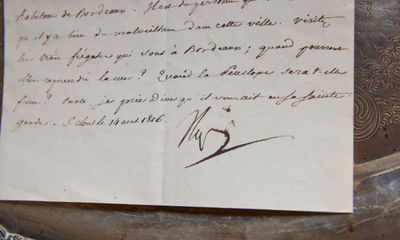 habitans de Bordeaux. Il est
qu'il y a bien de malveillans dans cette ville. visitez
les trois frégates qui sont à Bordeaux; quand pourront
elles reprendre la mer? Quand la Pénélope sera t'elle
Sur ce je prie dieu qu'il vous ait en sa sainte
garde. St Cloud le 14 aout 1806.